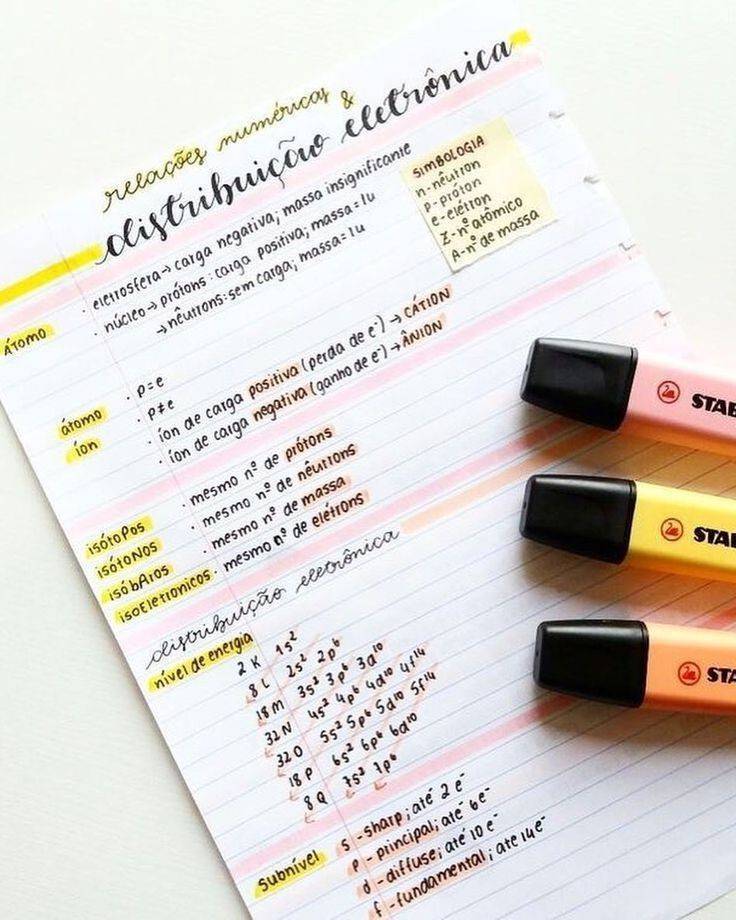 relações numéricas &
distribuição eletrônica
SIMBOLOGIA
n-nêutron
p-próton
e-elétron
Z-nº atômico
A-nº de massa
átomo
· eletrosfera → carga negativa; massa insignificante
· núcleo → prótons: carga positiva; massa=1u
→ nêutrons: sem carga; massa=1u
átomo · p=e
íon · p≠e
· íon de carga positiva (perda de e⁻) → CÁTION
· íon de carga negativa (ganho de e⁻) → ÂNION
isótoPos · mesmo nº de prótons
isótoNos · mesmo nº de nêutrons
isóbAros · mesmo nº de massa
isoEletronicos · mesmo nº de elétrons
distribuição eletrônica
nível de energia
2 K 1s²
8 L 2s² 2p⁶
18 M 3s² 3p⁶ 3d¹⁰
32 N 4s² 4p⁶ 4d¹⁰ 4f¹⁴
32 O 5s² 5p⁶ 5d¹⁰ 5f¹⁴
18 P 6s² 6p⁶ 6d¹⁰
8 Q 7s² 7p⁶
subnível
s - sharp; até 2 e⁻
p - principal; até 6e⁻
d - diffuse; até 10 e⁻
f - fundamental; ate 14e⁻
STAB
STAB
STA